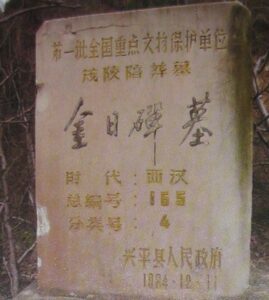 第一批全国重点文物保护单位
茂陵陪葬墓
金日磾墓
时 代：西汉
总编号：165
分类号：4
兴平县人民政府
1984·12·11